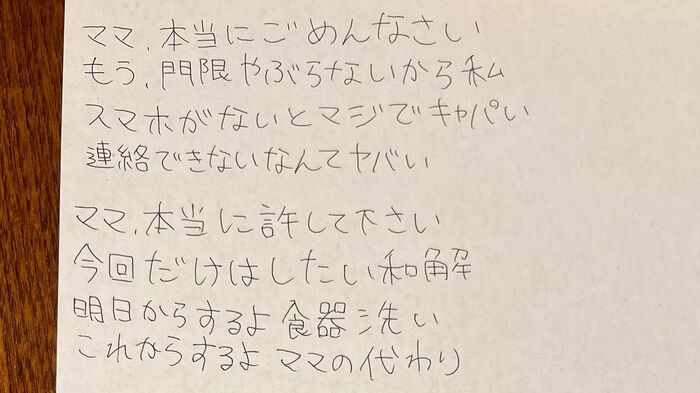 ママ、本当にごめんなさい
もう、門限やぶらないから私
スマホがないとマジでキャパい
連絡できないなんてヤバい
ママ、本当に許して下さい
今回だけはしたい和解
明日からするよ食器洗い
これからするよママの代わり